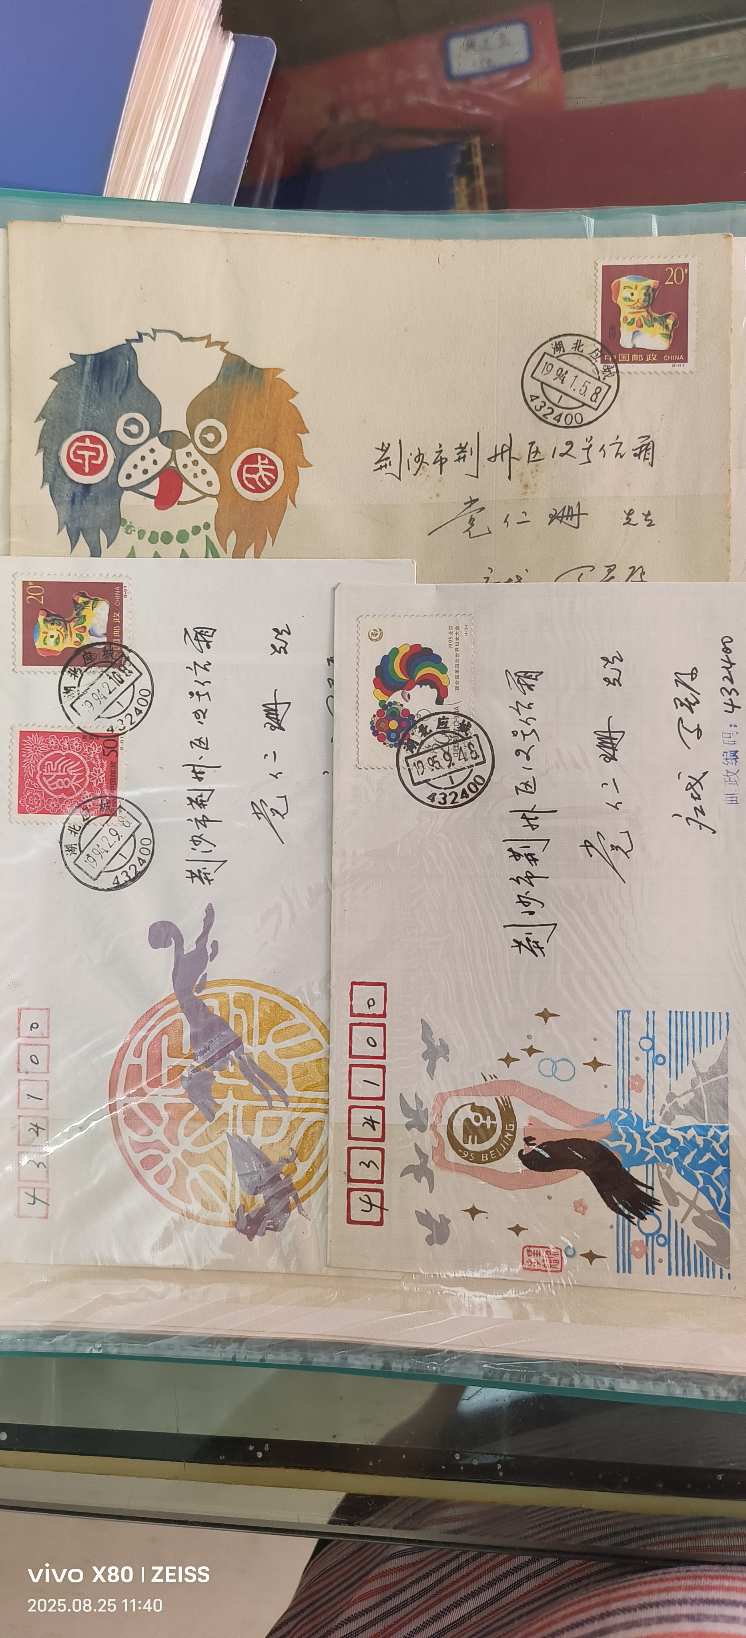 20分
中国邮政 CHINA
湖北应城
1994.1.5.8
432400
荆沙市荆州区12号信箱
党仁珊 先生
守
20分
CHINA
中国邮政
湖北应城
1994.2.10.8
432400
50
湖北应城
1994.2.9.8
432400
荆沙市荆州区12号信箱
党仁珊 先生
434100
湖北应城
1995.9.4.8
432400
荆沙市荆州区12号信箱
党仁珊 先生
应城
邮政编码:432400
434100
-95 BEIJING
vivo X80 | ZEISS
2025.08.25 11:40